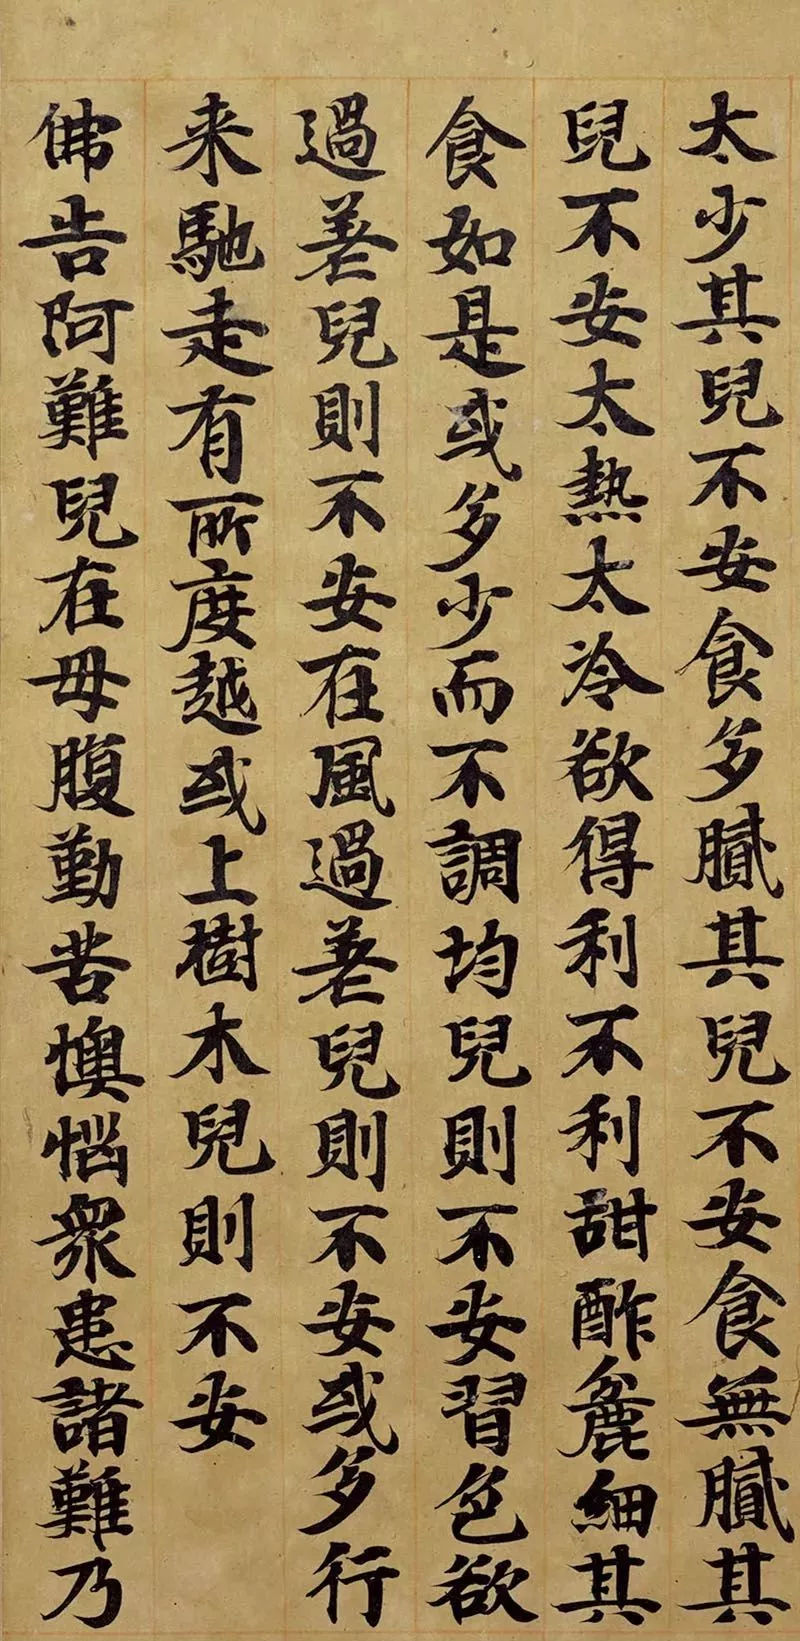 太少其兒不安食多膩其兒不安食無膩其
兒不安太熱太冷欲得利不利甜酢麁細其
食如是或多少而不調均兒則不安習色欲
過差兒則不安在風過差兒則不安或多行
来馳走有所度越或上樹木兒則不安
佛告阿難兒在母腹勤苦懊惱衆患諸難乃